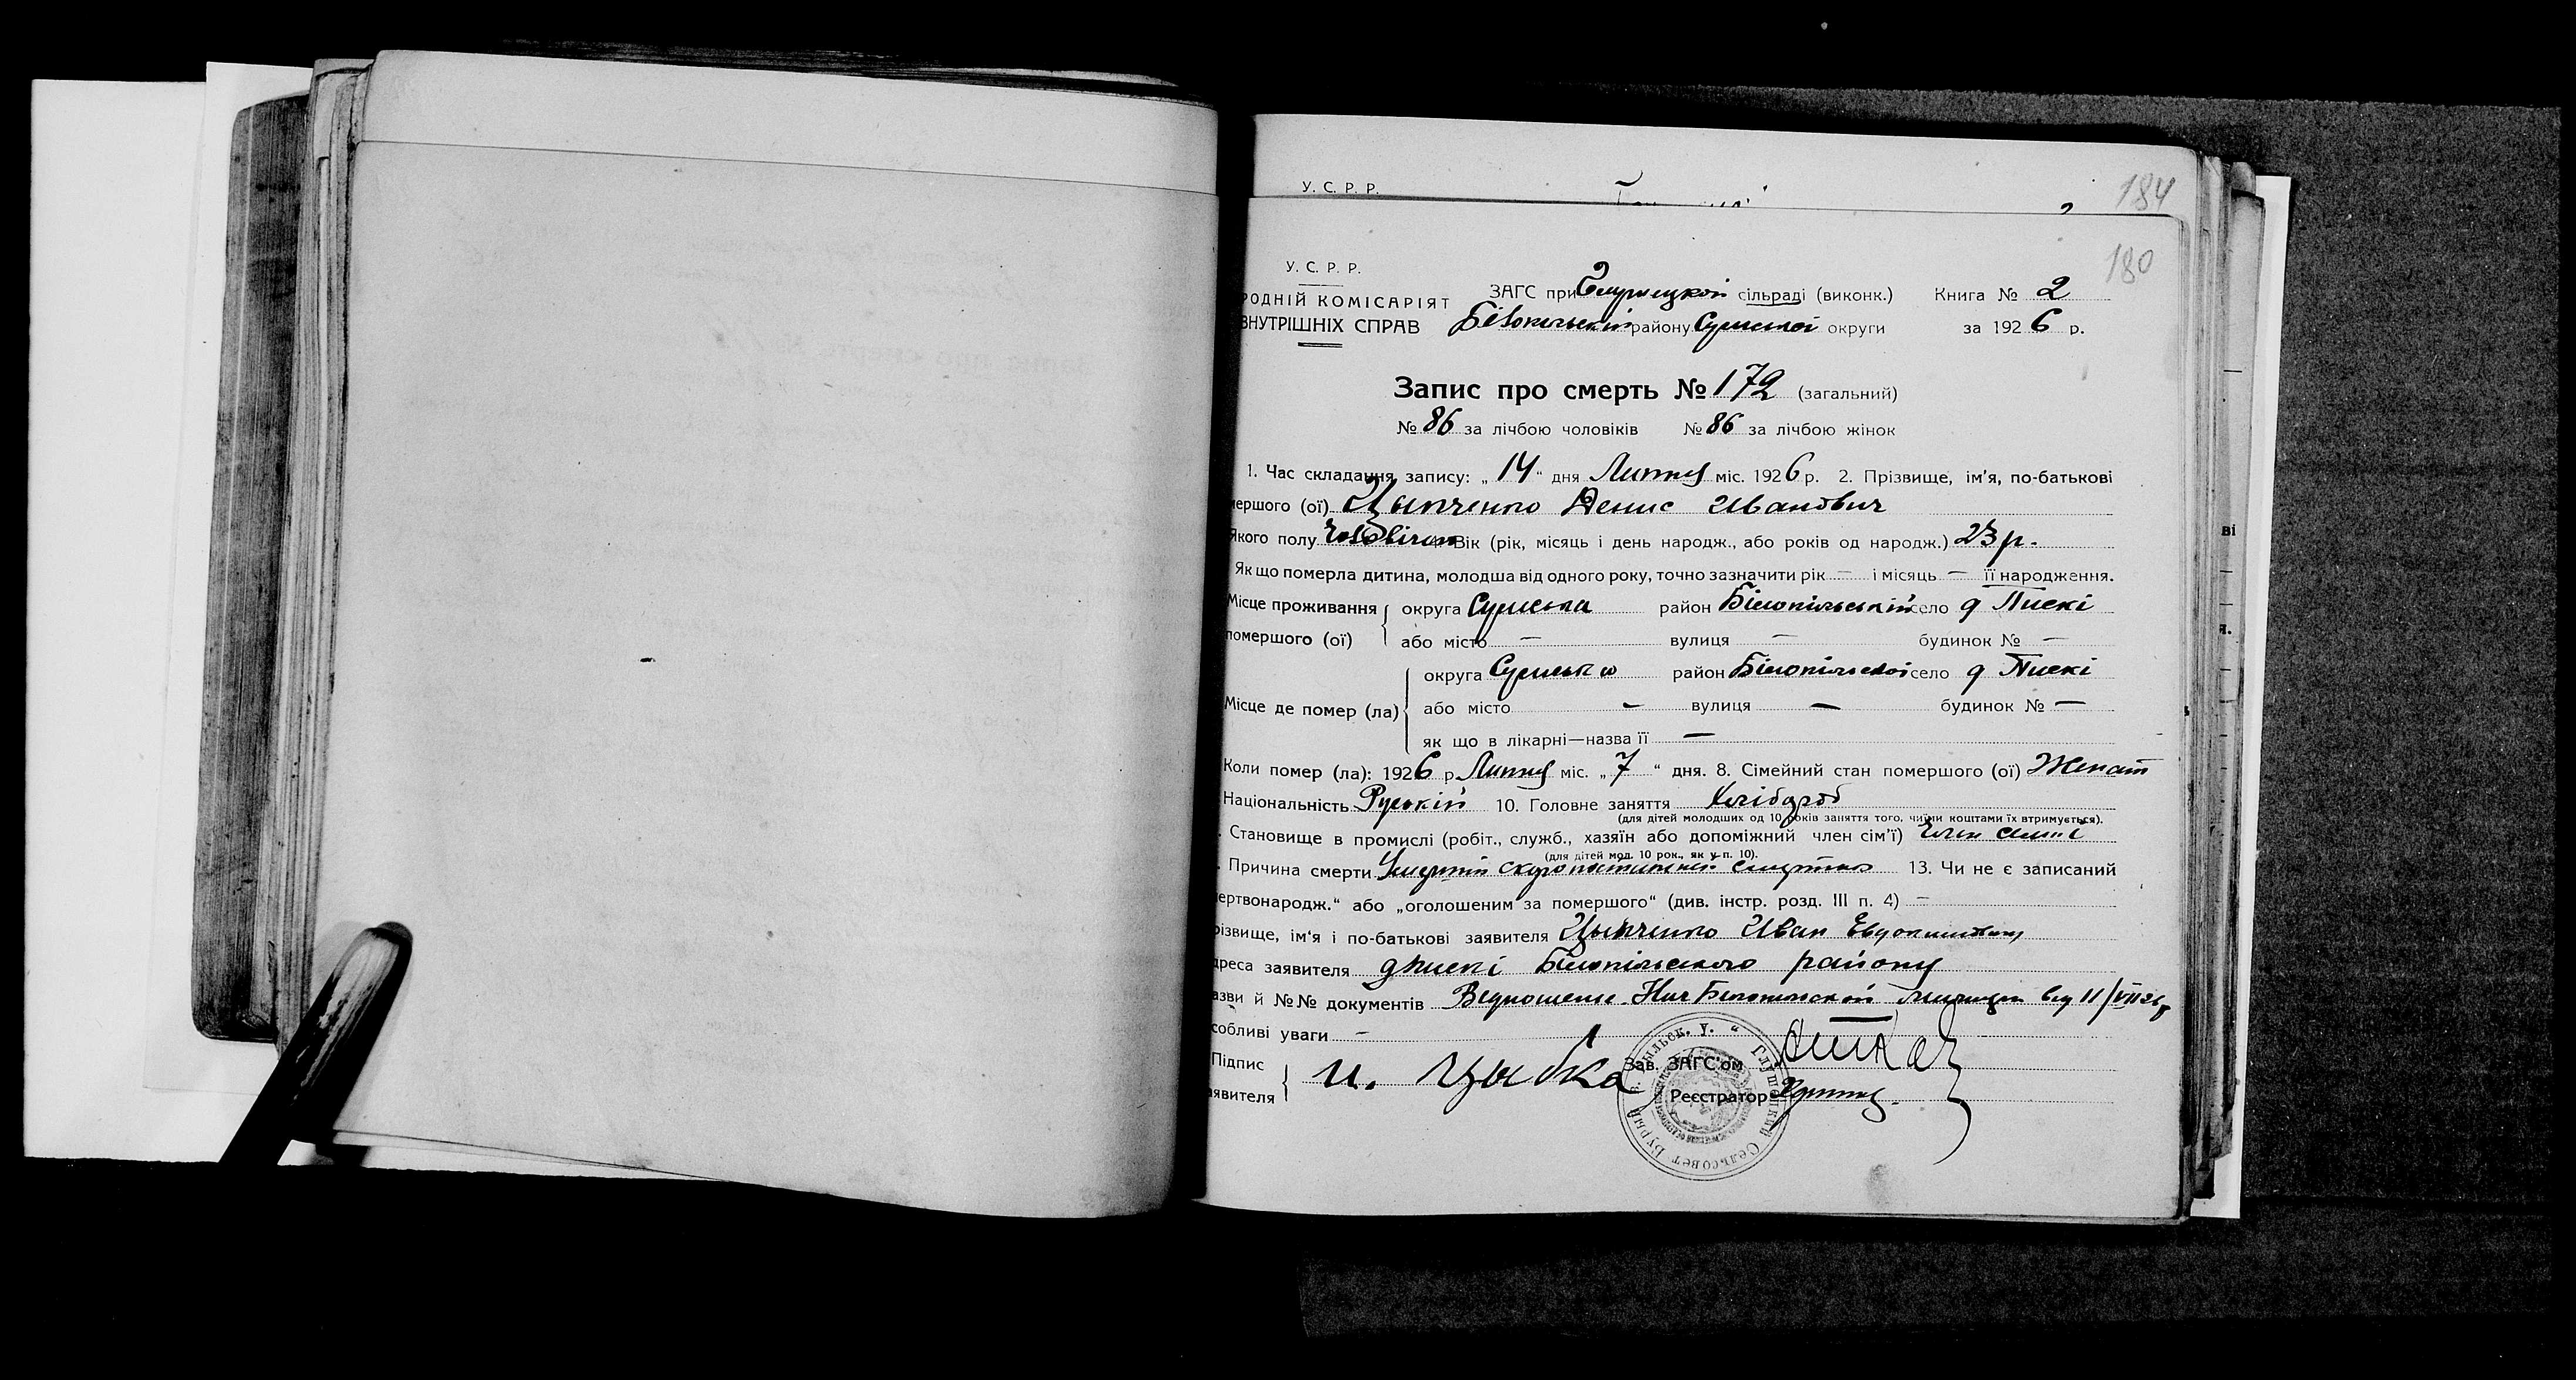 У. С. Р. Р.
184
180
У. С. Р. Р.
РОДНІЙ КОМІСАРІЯТ
ВНУТРІШНІХ СПРАВ
ЗАГС при сільраді (виконк.) Книга № 2
району Сумської округи за 1926 р.
Запис про смерть № 172 (загальний)
№ 86 за лічбою чоловіків № 86 за лічбою жінок
1. Час складання запису: „ 14 “ дня Липня міс. 1926 р. 2. Прізвище, ім'я, по-батькові
мершого (ої) Цыпченко Денис Иванович
Якого полу 4. Вік (рік, місяць і день народж., або років од народж.) 23 р.
Як що померла дитина, молодша від одного року, точно зазначити рік — і місяць — її народження.
Місце проживання округа Сумська район Білопільський село д Пискі
помершого (ої) або місто — вулиця — будинок № —
округа Сумська район село д Пискі
Місце де помер (ла) або місто — вулиця — будинок № —
як що в лікарні—назва її —
Коли помер (ла): 1926 р. Липня міс. „ 7 “ дня. 8. Сімейний стан помершого (ої) Женат
Національність Руський 10. Головне заняття Хлібороб
(для дітей молодших од 10 років заняття того, чиїми коштами їх втримується).
. Становище в промислі (робіт., служб., хазяїн або допоміжний член сім'ї) член семї
(для дітей мол. 10 рок., як у п. 10).
. Причина смерти скоропостижной смертю 13. Чи не є записаний
ертвонародж.“ або „оголошеним за помершого“ (див. інстр. розд. III п. 4) —
різвище, ім'я і по-батькові заявителя Цыпченко Иван Евдокимович
дреса заявителя д Пискі Білопільського району
азви й №№ документів Нач вид 11/VII 26 р
собливі уваги —
Підпис
аявителя
и. Цыбка
Зав. ЗАГС'ом
Реєстратор
Сельсовет
ві
я.